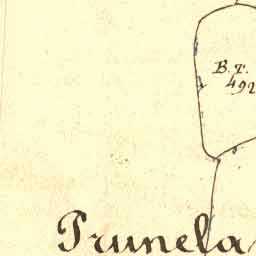 B. T.
492
Prunela